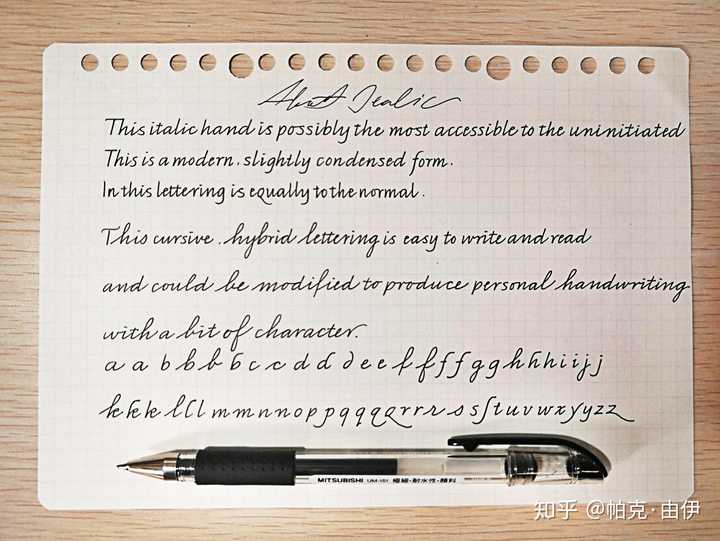 About Italic
This italic hand is possibly the most accessible to the uninitiated
This is a modern, slightly condensed form.
In this lettering is equally to the normal.
This cursive, hybrid lettering is easy to write and read
and could be modified to produce personal handwriting
with a bit of character.
a a b b b b c c d d d e e f f f f g g h h h i i j j
k k k l l l m m n n o p p q q q q r r r s s ſ t u v w x y y z z
MITSUBISHI UM-151 極細・耐水性・顔料
知乎 @帕克·由伊